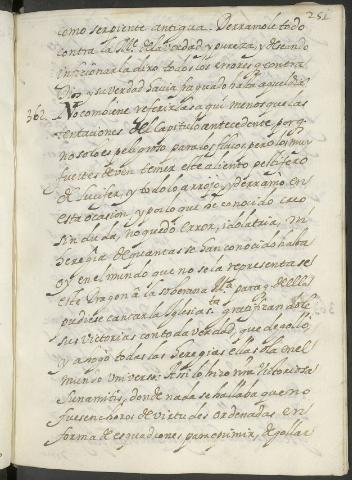 251
como serpiente antigua. Derramole todo
contra la Me. de la verdad y pureza, y deseando
inficionarla dixo todos los errores q contra
Dios y su verdad havia fraguado hasta aquel dia
362 No combiene referirlas aqui menos que las
tentaciones del Capitulo antecedente, porq
no solo es peligroso para los flacos, pero los muy
fuertes deven temer este aliento pestifero
de Lucifer, y todo lo arrojo, y derramo en
esta ocasion, y por lo que he conocido creo
sin duda, no quedo error, idolatria, ni
heregia de quantas se han conocido hasta
oy en el mundo que no se la representase
este Dragon a la soberana Ma. para q de ella
pudiese cantar la Iglesia Sta. gratificandole
sus victorias con toda verdad, que degollo,
y ahogo todas las heregias ella sola en el
mundo universo: Asi lo hizo nra. victoriosa
Sunamitis, donde nada se hallaba que no
fuesen choros de virtudes ordenadas en
forma de esquadrones, para oprimir, degollar